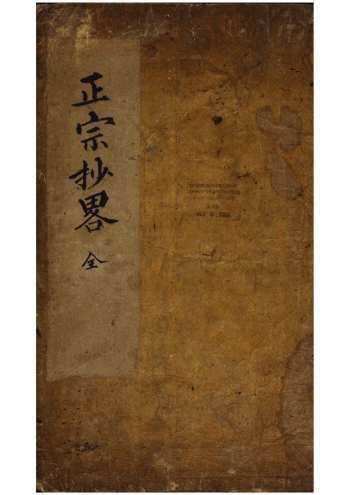 正宗抄畧 全